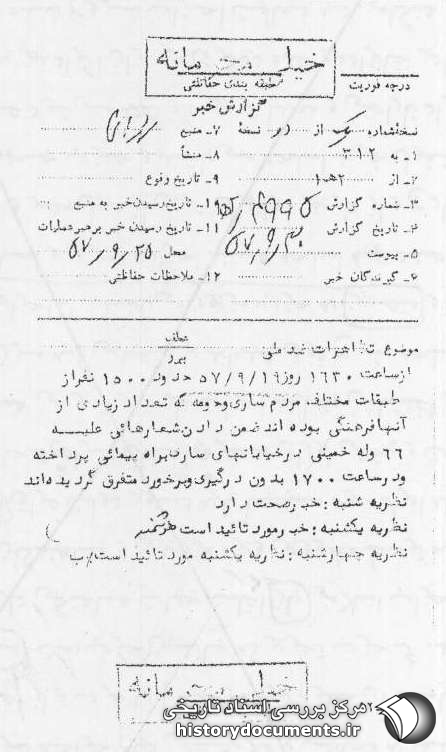 خیلی محرمانه
طبقه بندی حفاظتی
درجه فوریت
گزارش خبر
نسخه شماره یک از دو نسخه
۷ـ منبع
۱ـ به ۳۱۲
۸ـ منشأ
۲ـ از ۲ه۱
۹ـ تاریخ وقوع
۳ـ شماره گزارش
۱۰ـ تاریخ رسیدن خبر به منبع
۴ـ تاریخ گزارش
۱۱ـ تاریخ رسیدن خبر به رهبر عملیات
۵ـ پیوست
محل ۵۷٫۹٫۲۵
۶ـ گیرندگان خبر
۱۲ـ ملاحظات حفاظتی
موضوع تظاهرات ضد ملی
عطف
پیرو
ازساعت ۱۶۳۰ روز ۵۷/۹/۱۹ حدود ۱۵۰۰ نفر از
طبقات مختلف مردم ساری وحومه که تعداد زیادی از
آنها فرهنگی بوده اند ضمن دادن شعارهائی علیه
۶۶ وله خمینی در خیابانهای ساری براه پیمائی پرداخته
ودر ساعت ۱۷۰۰ بدون درگیری وبرخورد متفرق گردیده اند
نظریه شنبه : خبر صحت دارد
نظریه یکشنبه : خبر مورد تائید است
نظریه چهارشنبه : نظریه یکشنبه مورد تائید است
خیلی محرمانه
مرکز بررسی اسناد تاریخی
historydocuments.ir